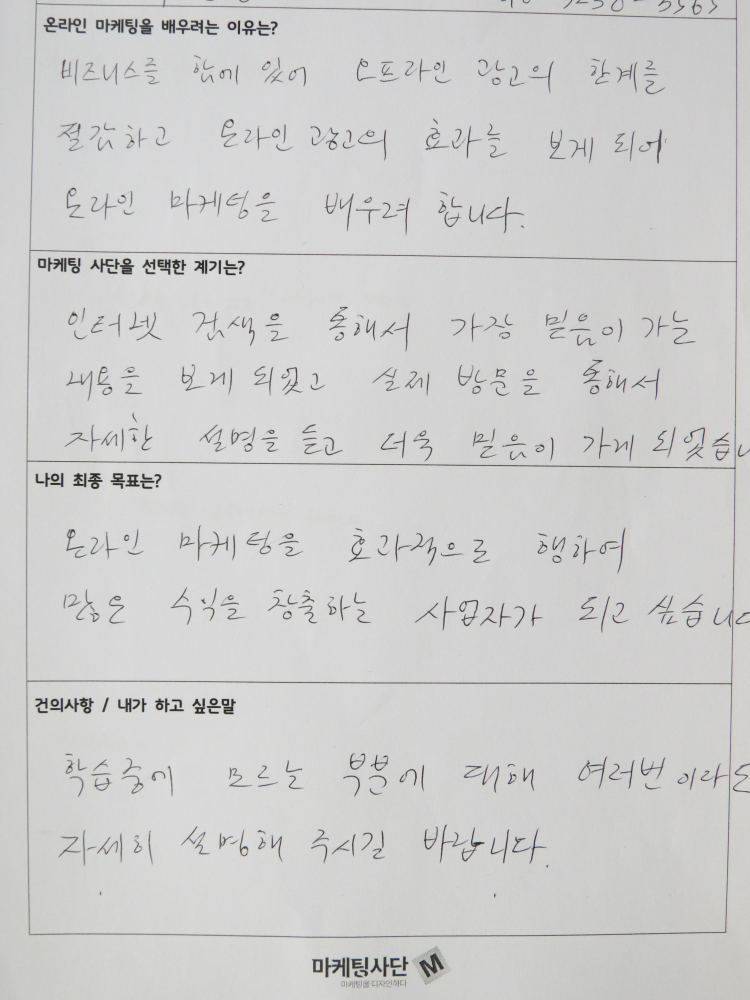 온라인 마케팅을 배우려는 이유는?
비즈니스를 함에 있어 오프라인 광고의 한계를
절감하고 온라인 광고의 효과를 보게 되어
온라인 마케팅을 배우려 합니다.
마케팅 사단을 선택한 계기는?
인터넷 검색을 통해서 가장 믿음이 가는
내용을 보게 되었고 실제 방문을 통해서
자세한 설명을 듣고 더욱 믿음이 가게 되었습니
나의 최종 목표는?
온라인 마케팅을 효과적으로 행하여
많은 수익을 창출하는 사업자가 되고 싶습니다
건의사항 / 내가 하고 싶은말
학습중에 모르는 부분에 대해 여러번 이라도
자세히 설명해 주시길 바랍니다.
마케팅사단 M
마케팅을 디자인하다